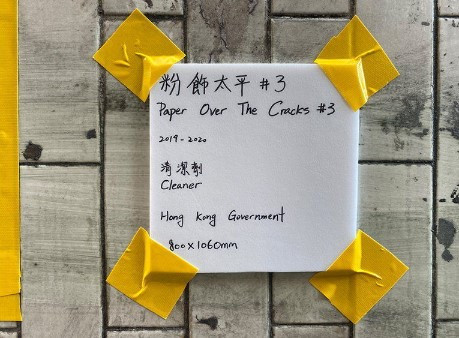 粉飾太平 #3
Paper Over The Cracks #3
2019-2020
清潔劑
Cleaner
Hong Kong Government
800x1060mm